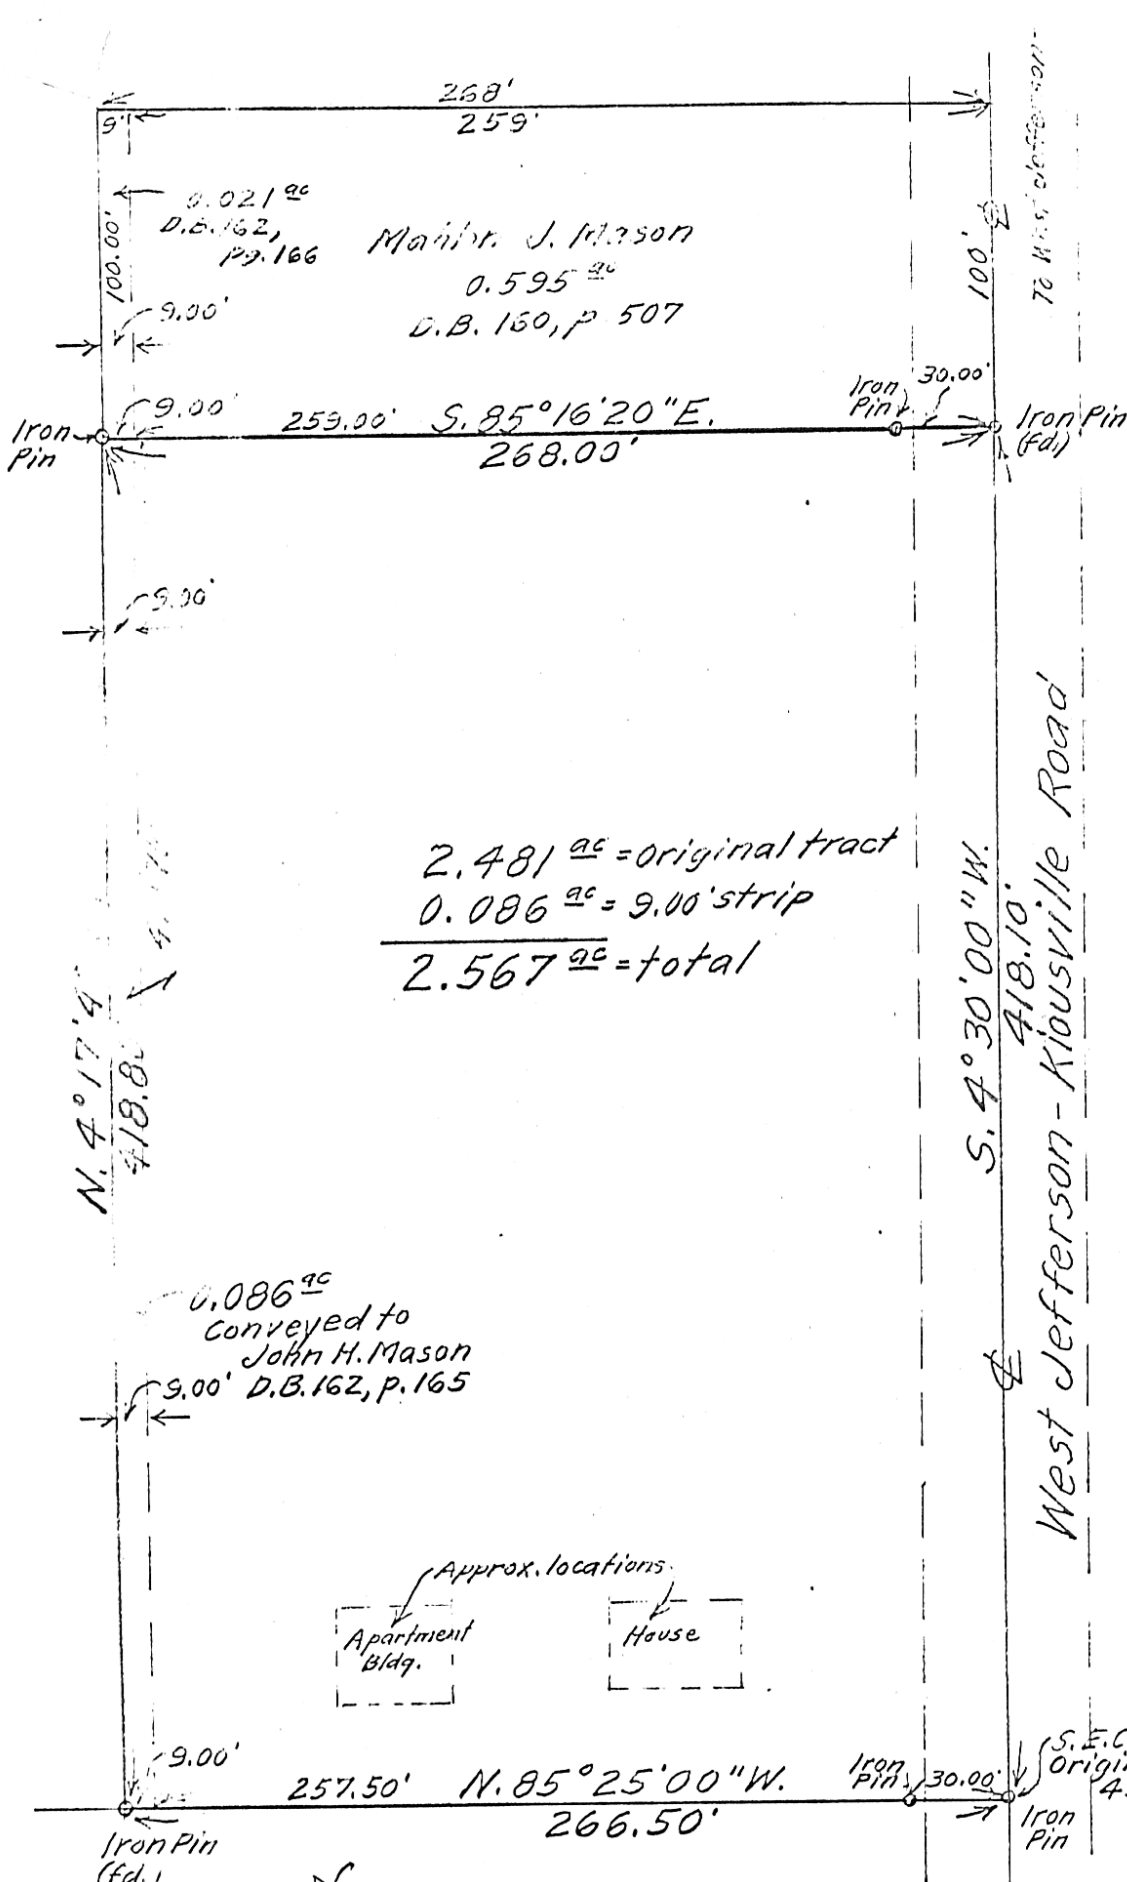 268'
259'
9'
0.021 ac
D.B. 162,
pg. 166
100.00'
9.00'
J. Mason
0.595 ac
D.B. 160, p 507
100'
℄
Iron
Pin
9.00'
259.00' S. 85°16'20"E.
268.00'
Iron
Pin
30.00'
Iron Pin
(fd.)
9.00'
2.481 ac = original tract
0.086 ac = 9.00' strip
2.567 ac = total
N. 4°17'4
418.8
S. 4°30'00"W.
418.10'
West Jefferson - Kiousville Road
℄
0.086 ac
Conveyed to
John H. Mason
9.00' D.B. 162, p. 165
Approx. locations
Apartment
Bldg.
House
9.00'
257.50' N. 85°25'00"W.
266.50'
Iron
Pin
30.00'
S.E.C
Origi
4.
Iron
Pin
Iron Pin
(fd.)